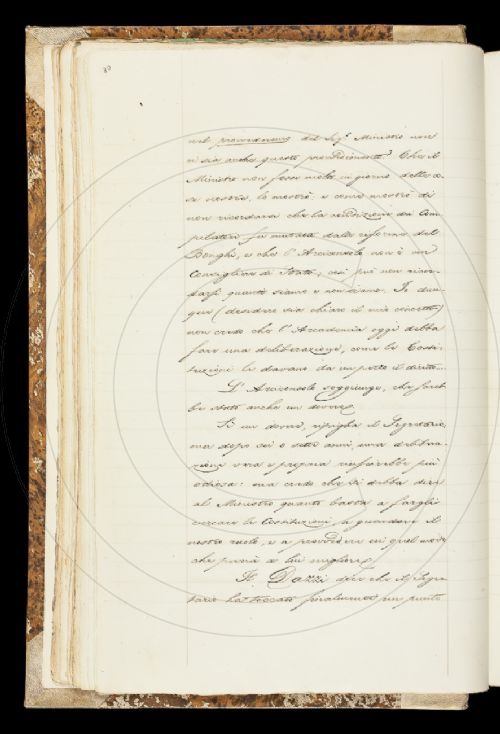 80
nel provvedimento del Sig.r Ministro non
vi sia anche questo provvedimento. Che il
Ministro non fosse molto in giorno delle co-
se nostre, lo mostrò: e come mostrò di
non ricordarsi che la condizione dei Com-
pilatori fu mutata dalla riforma del
Bonghi, e che l'Arciconsolo non è un
Consigliere di Stato, così può non ricor-
darsi quanti siamo e non siamo. Io dun-
que (desidero sia chiaro il mio concetto)
non credo che l'Accademia oggi debba
fare una deliberazione, come le Costi-
tuzioni le davano da un pezzo il diritto...
L'Arciconsolo soggiunge, che sareb-
be stato anche un dovere.
È un dovere, ripiglia il Segretario,
ma dopo sei o sette anni, una delibera-
zione vera e propria riuscirebbe più
odiosa: ma credo che si debba dire
al Ministro quanto basta a fargli
cercare le Costituzioni, a guardare il
nostro ruolo, e a provvedere in quel modo
che parrà a lui migliore.
Il Dazzi dice che il Segre-
tario ha toccato finalmente un punto